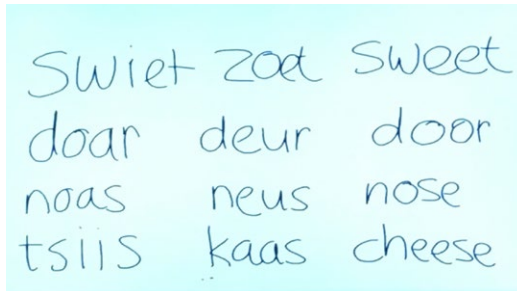 swiet zoet sweet
doar deur door
noas neus nose
tsiis kaas cheese